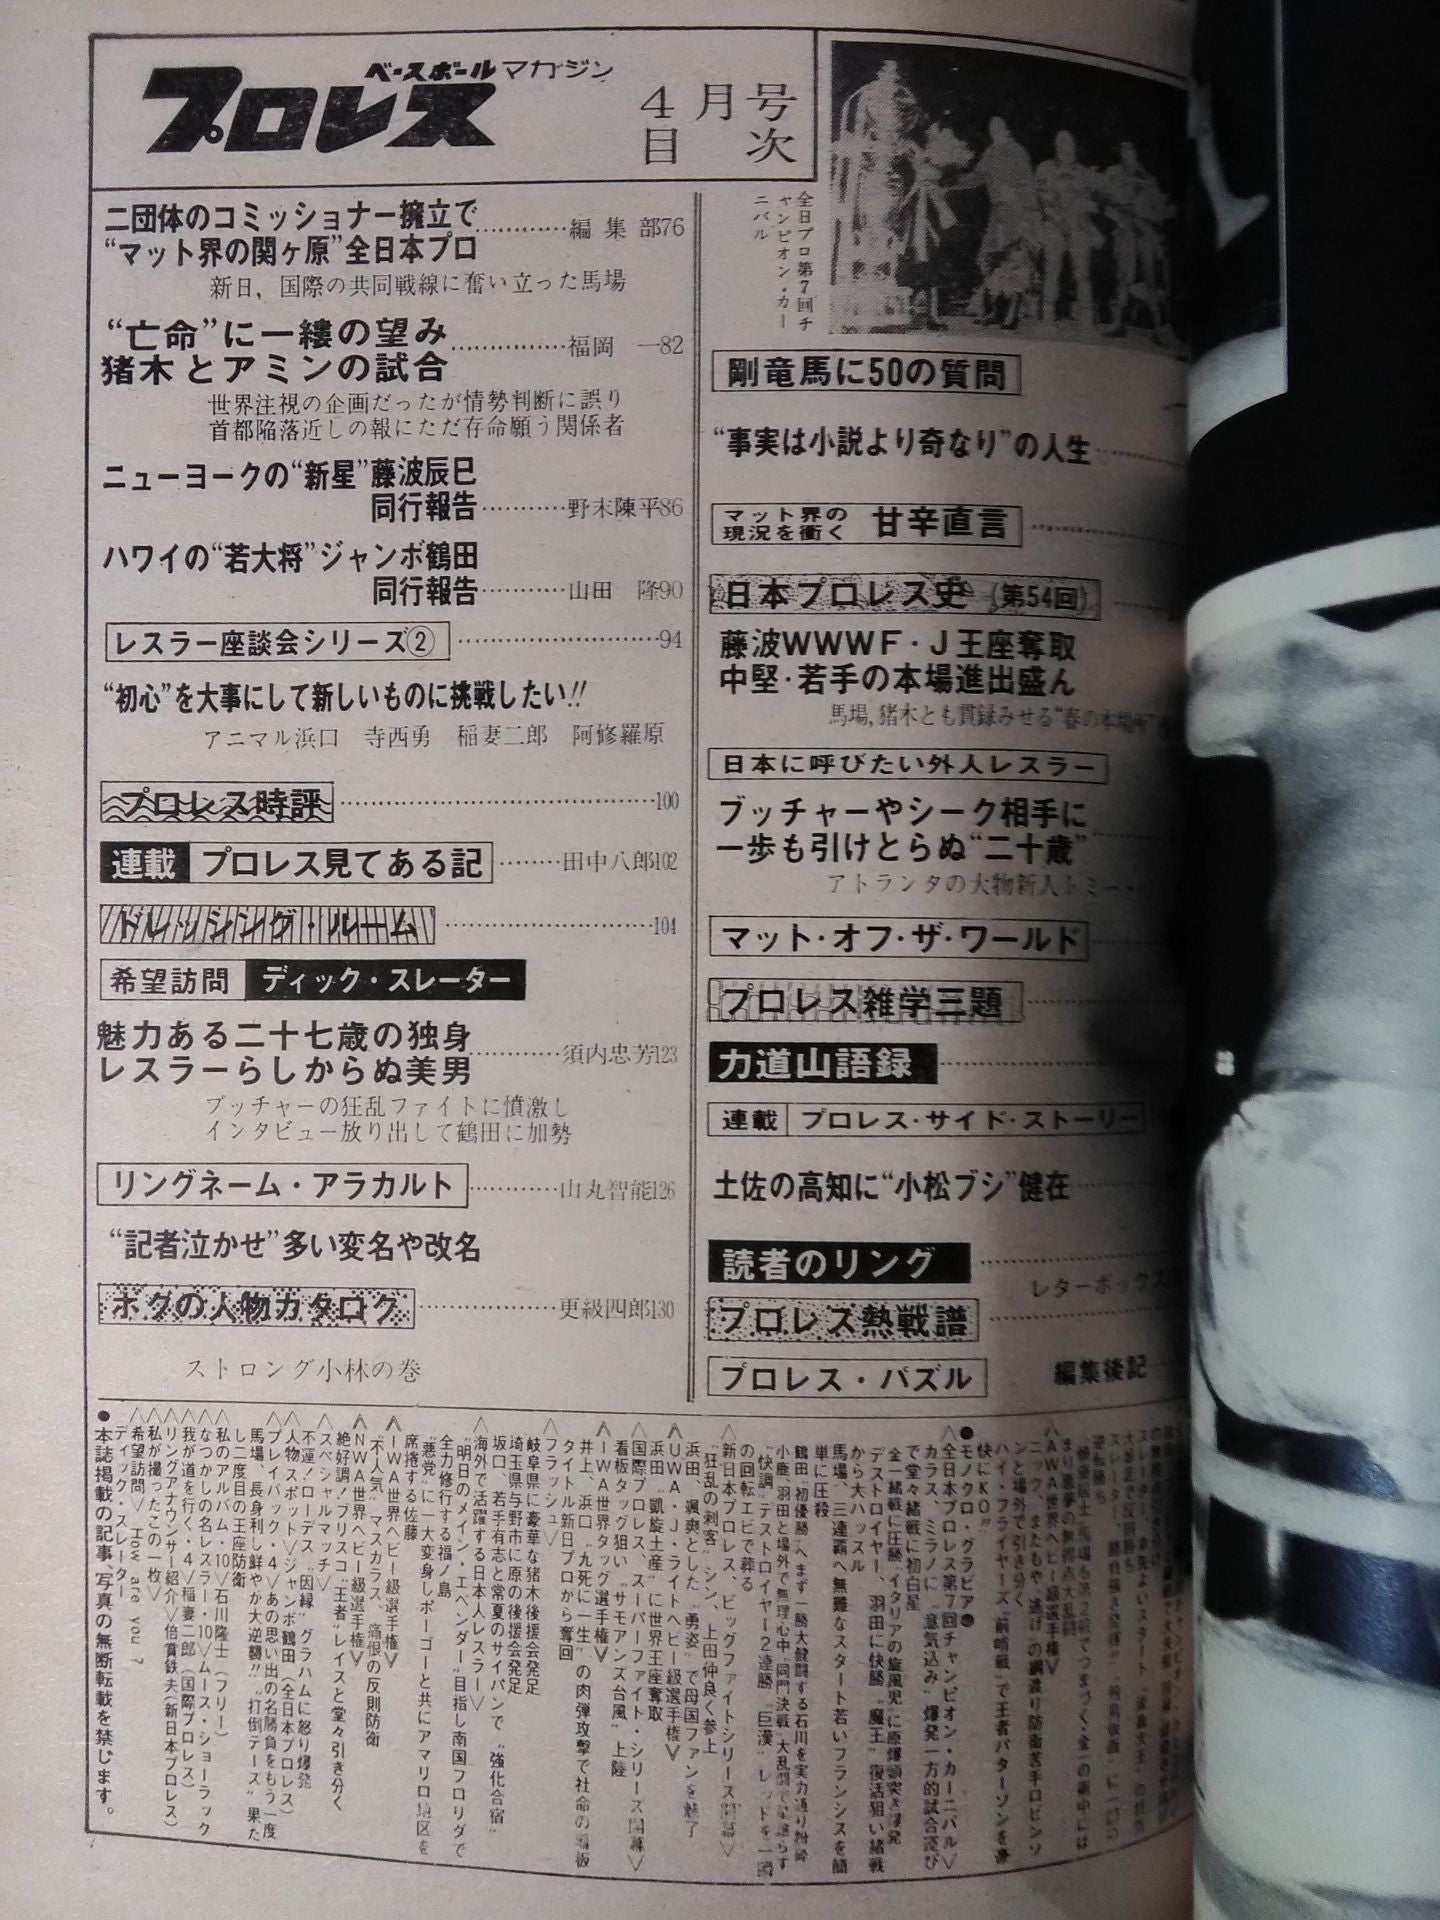 ベースボールマガジン
プロレス
4月号
目次
二団体のコミッショナー擁立で
“マット界の関ヶ原”全日本プロ…………編集部76
新日，国際の共同戦線に奮い立った馬場
“亡命”に一縷の望み
猪木とアミンの試合……………福岡　一82
世界注視の企画だったが情勢判断に誤り
首都陥落近しの報にただ存命願う関係者
ニューヨークの“新星”藤波辰巳
同行報告…………野末陳平86
ハワイの“若大将”ジャンボ鶴田
同行報告…………山田　隆90
レスラー座談会シリーズ②……………………94
“初心”を大事にして新しいものに挑戦したい!!
アニマル浜口　寺西勇　稲妻二郎　阿修羅原
プロレス時評………………………………100
連載 プロレス見てある記………田中八郎102
ドレッシング・ルーム………………………104
希望訪問 ディック・スレーター
魅力ある二十七歳の独身
レスラーらしからぬ美男…………須内忠芳123
ブッチャーの狂乱ファイトに憤激し
インタビュー放り出して鶴田に加勢
リングネーム・アラカルト…………山丸智能126
“記者泣かせ”多い変名や改名
ボクの人物カタログ………………更級四郎130
ストロング小林の巻
全日プロ第7回チ
ャンピオン・カー
ニバル
剛竜馬に50の質問
“事実は小説より奇なり”の人生
マット界の
現況を衝く 甘辛直言
日本プロレス史（第54回）
藤波WWWF・J王座奪取
中堅・若手の本場進出盛ん
馬場，猪木とも貫録みせる“春の本場所”
日本に呼びたい外人レスラー
ブッチャーやシーク相手に
一歩も引けとらぬ“二十歳”
アトランタの大物新人トミー・
マット・オフ・ザ・ワールド
プロレス雑学三題
力道山語録
連載 プロレス・サイド・ストーリー
土佐の高知に“小松ブシ”健在
読者のリング
レターボックス
プロレス熱戦譜
プロレス・パズル
編集後記
〈AWA世界ヘビー級選手権〉
ニック、またもや“逃げ”の綱渡り防衛苦手ロビンソ
ンと場外で引き分く
ハイ・フライヤーズ“前哨戦”で王者パターソンを豪
快にKO〃
●モノクロ・グラビア●
〈全日本プロレス第7回チャンピオン・カーニバル〉
カラス、ミラノに“意気込み”爆発一方的試合運び
で堂々緒戦に初白星
金一緒戦に圧勝、イタリアの旋風児に原爆頭突き爆発
デストロイヤー、羽田に快勝“魔王”復活狙い緒戦
から大ハッスル
馬場、三連覇へ無難なスタート若いフランシスを簡
単に圧殺
鶴田“初優勝”へまず一勝大健闘する石川を実力通り粉砕
小鹿、羽田と場外で無理心中、同門決戦“大乱闘で
“快調”デストロイヤー2連勝“巨漢”レッドを一瞬
の回転エビで葬る
〈新日本プロレス、ビッグファイトシリーズ開幕〉
“狂乱の刺客”シン、上田仲良く参上
浜田、颯爽とした“勇姿”で母国ファンを魅了
〈UWA・J・ライトヘビー級選手権〉
浜田“凱旋土産”に世界王座奪取
〈国際プロレス、スーパーファイト・シリーズ開幕〉
看板タッグ狙い“サモアンズ台風”上陸
〈IWA世界タッグ選手権〉
井上、浜口“九死に一生”の肉弾攻撃で社命の看板
タイトル新日プロから奪回
〈フラッシュ〉
岐阜県に豪華な猪木後援会発足
埼玉県与野市に原の後援会発足
坂口、若手有志と常夏のサイパンで“強化合宿”
〈海外で活躍する日本人レスラー〉
“明日のメイン・エベンダー”目指し南国フロリダで
全力修行する福ノ島
“悪党”に一大変身しポーゴーと共にアマリロ地区を
席捲する佐藤
〈IWA世界ヘビー級選手権〉
“不人気”マスカラス、痛恨の反則防衛
〈NWA世界ヘビー級選手権〉
絶好調！ブリスコ“王者”レイスと堂々引き分く
〈スペシャルマッチ〉
不運！ローデス、“因縁”グラハムに怒り爆発
〈人物スポット〉ジャンボ鶴田（全日本プロレス）
〈プレイバック・4〉あの思い出の名勝負をもう一度
馬場、長身利し鮮やか大逆襲!!“打倒テーズ”果た
し二度目の王座防衛
〈私のアルバム・10〉石川隆士（フリー）
〈なつかしの名レスラー・10〉ムース・ショーラック
〈我が道を行く・4〉稲妻二郎（国際プロレス）
〈リングアナウンサー紹介〉倍賞鉄夫（新日本プロレス）
〈私が撮ったこの一枚〉
〈希望訪問〉 How are you ?
ディック・スレーター
●本誌掲載の記事、写真の無断転載を禁じます。